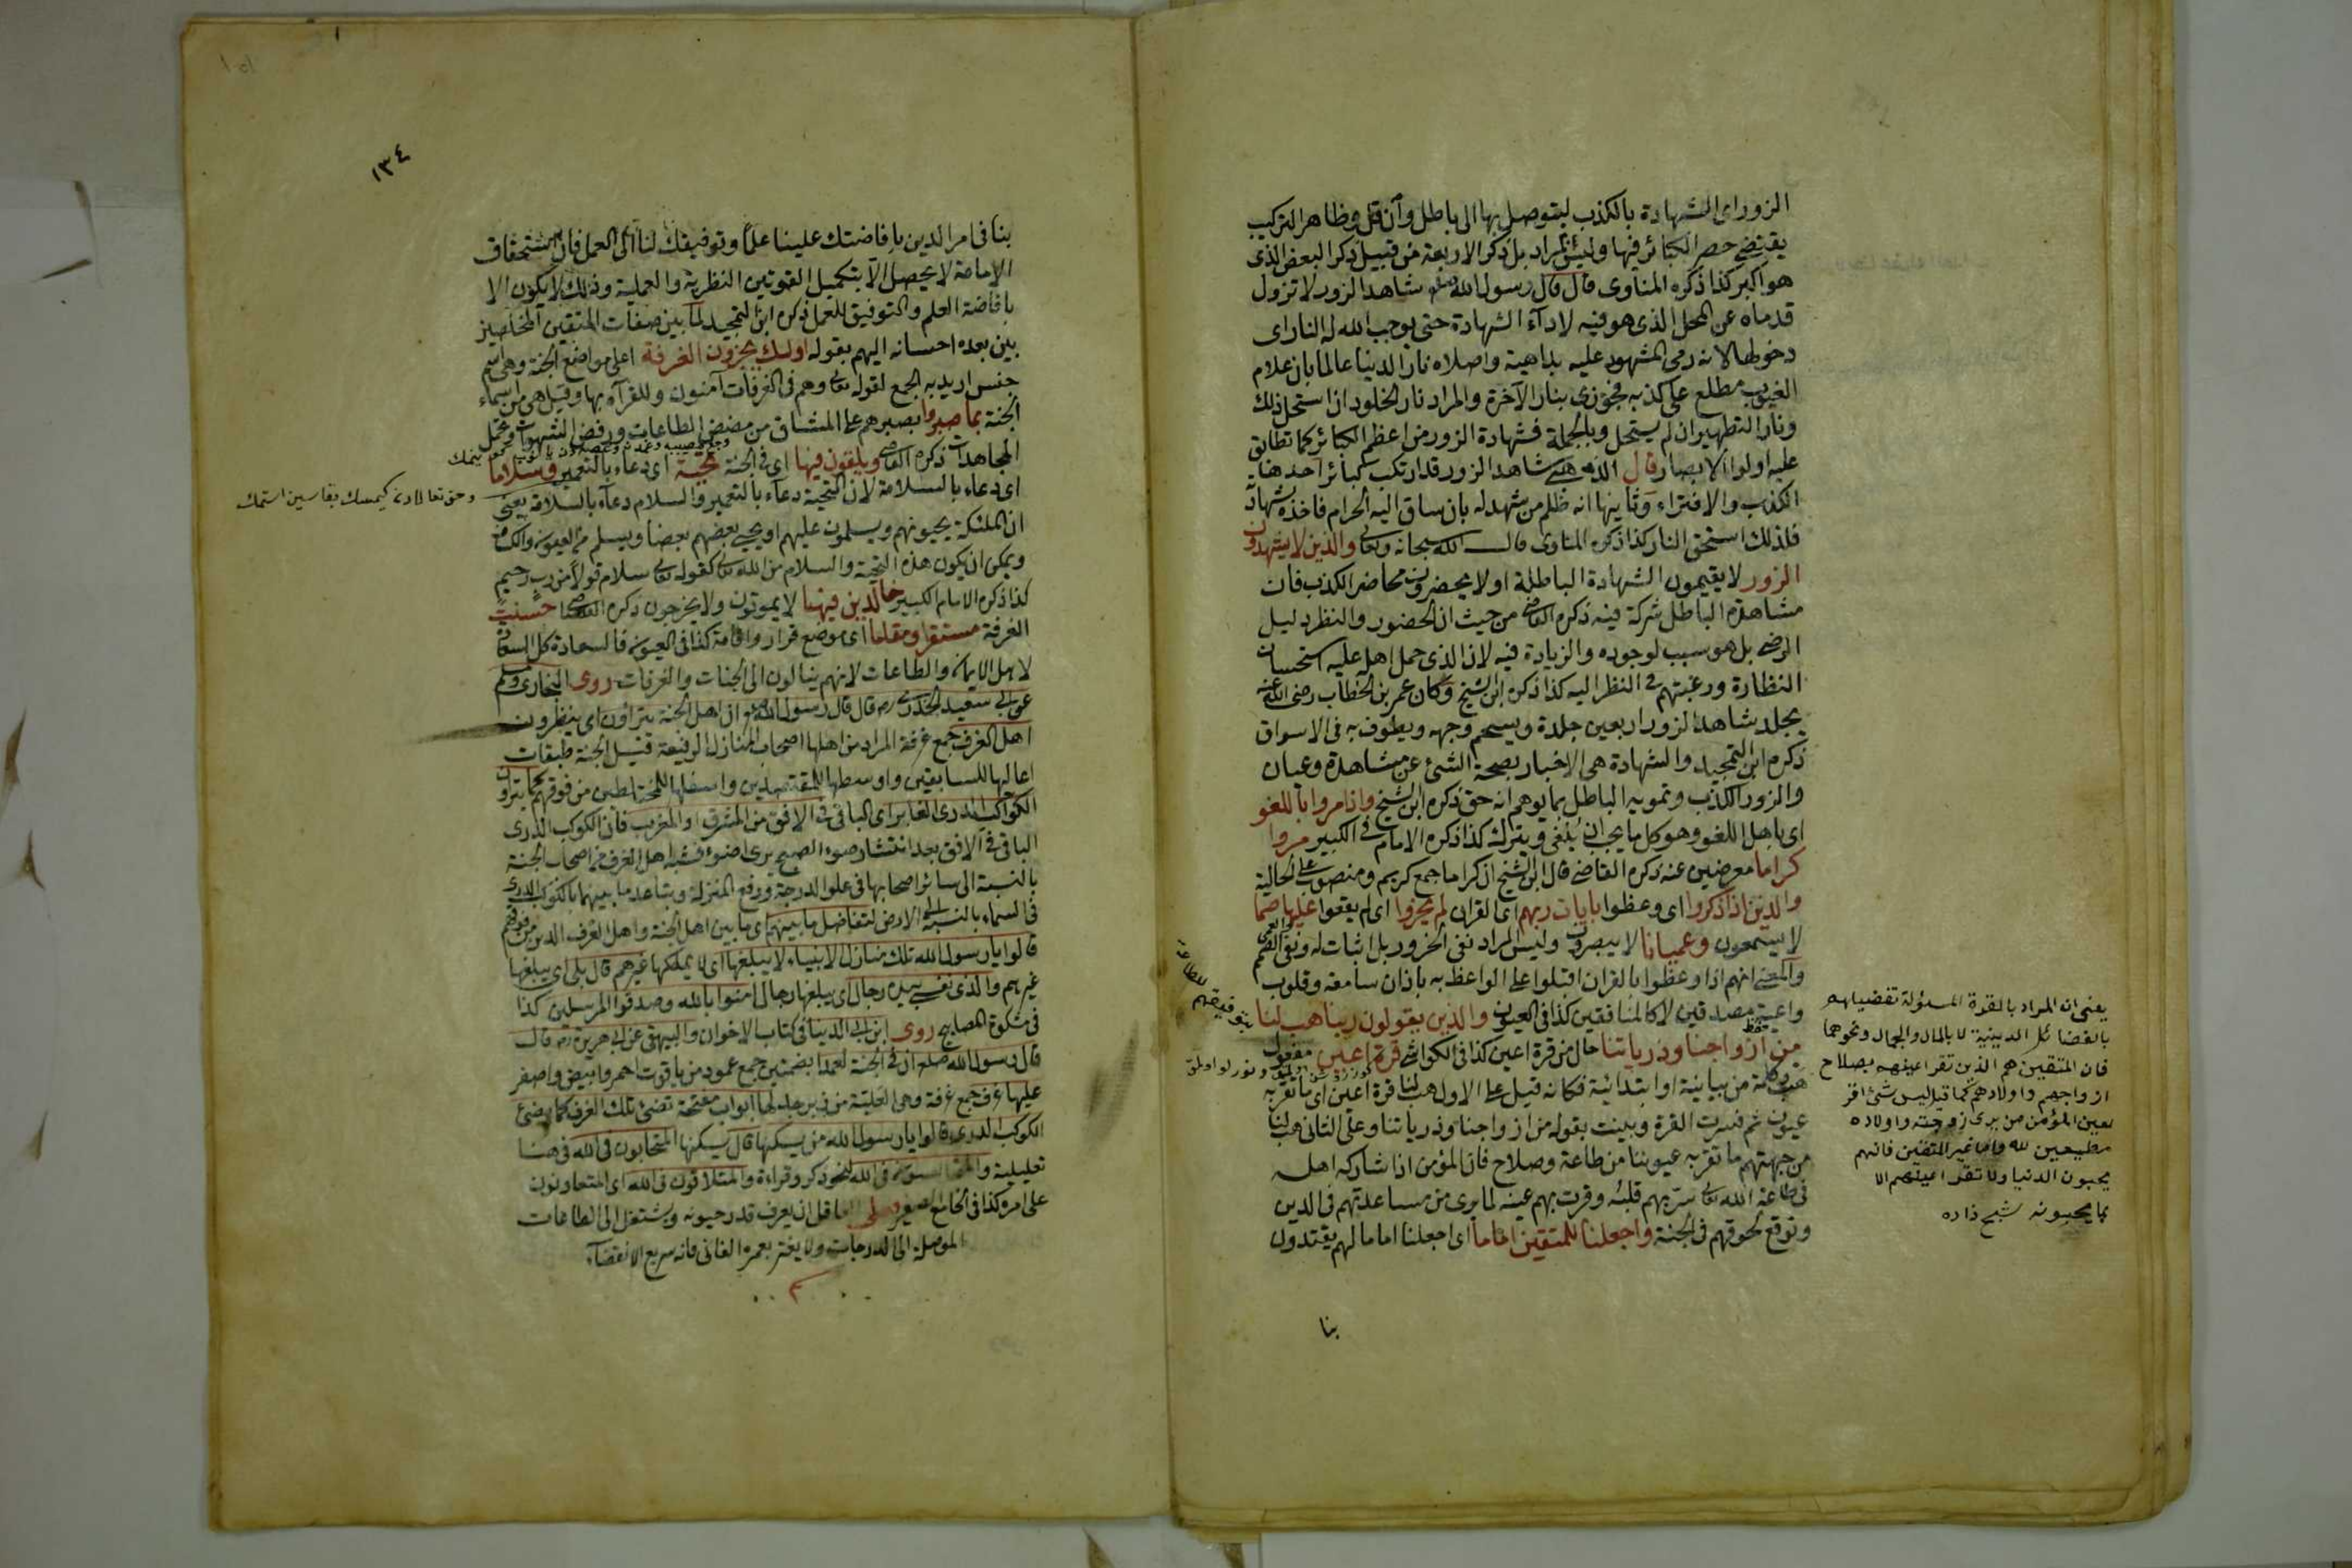 الزور اى الشهادة بالكذب ليتوصل بها الى باطل وان قل وظاهر التركيب
يقتضى حصر الكبائر فيها وليس بمراد بل ذكر الاربعة من قبيل ذكر البعض الذى
هو اكبر كذا ذكره المناوى قال قال رسول الله صلعم شاهد الزور لا تزول
قدماه عن المحل الذى هو فيه لاداء الشهادة حتى يوجب الله له النار اى
دخولها لانه رمى المشهود عليه بداهية واصلاه نار الدنيا عالما بان علام
الغيوب مطلع على كذبه فجوزى بنار الآخرة والمراد نار الخلود ان استحل ذلك
ونار التطهير ان لم يستحل وبالجملة فشهادة الزور من اعظم الكبائر كما تطابق
عليه اولوا الابصار قال الذهبى شاهد الزور قد ارتكب كبائر احدها
الكذب والافتراء وثانيها انه ظلم من شهد له بان ساق اليه الحرام فاخذه بشهادته
فلذلك استحق النار كذا ذكره المناوى قال الله سبحانه وتعالى والذين لا يشهدون
الزور لا يقيمون الشهادة الباطلة او لا يحضرون محاضر الكذب فان
مشاهدة الباطل شركة فيه ذكره القاضى من حيث ان الحضور والنظر دليل
الرضى بل هو سبب لوجوده والزيادة فيه لان الذى حمل اهله عليه استحسان
النظارة ورغبتهم فى النظر اليه كذا ذكره ابن الشيخ وكان عمر بن الخطاب رضى الله عنه
يجلد شاهد الزور اربعين جلدة ويسحم وجهه ويطوف به فى الاسواق
ذكره ابن التمجيد والشهادة هى الاخبار بصحة الشئ عن مشاهدة وعيان
والزور الكذب وتمويه الباطل بما يوهم انه حق ذكره ابن الشيخ واذا مروا باللغو
اى باهل اللغو وهو كل ما يجب ان يلغى ويترك كذا ذكره الامام فى الكبير مروا
كراما معرضين عنه ذكره القاضى قال ابن الشيخ ان كراما جمع كريم ومنصوب على الحالية
والذين اذا ذكروا اى وعظوا بايات ربهم اى القران لم يخروا اى لم يقعوا عليها صما
لا يسمعون وعميانا لا يبصرون وليس المراد نفى الخرور بل اثبات له ونفى الصمم والعمى
والمعنى انهم اذا وعظوا بالقران اقبلوا على الواعظ به باذان سامعة وقلوب
واعية مصدقين لا كالمنافقين كذا فى العيون والذين يقولون ربنا هب لنا
من ازواجنا وذرياتنا حال من قرة اعين كذا فى الكواشى قرة اعين مفعول
هب وكلمة من بيانية او ابتدائية فكانه قيل على الاول هب لنا قرة اعين اى ما تقر به
عيون ثم فسرت القرة وبينت بقوله من ازواجنا وذرياتنا وعلى الثانى هب لنا
من جهتهم ما تقر به عيوننا من طاعة وصلاح فان المؤمن اذا شاركه اهله
فى طاعة الله تعالى سر بهم قلبه وقرت بهم عينه لما يرى من مساعدتهم فى الدين
وتوقع لحوقهم فى الجنة واجعلنا للمتقين اماما اى اجعلنا اماما لهم يقتدون
بنا
بتوفيقهم للطاعة
يعنى ان المراد بالقرة المسؤلة تفضيلهم
بالفضائل الدينية لا بالمال والجمال ونحوهما
فان المتقين هم الذين تقر اعينهم بصلاح
ازواجهم واولادهم كما قيل ليس شئ اقر
لعين المؤمن من يرى زوجته واولاده
مطيعين لله واما غير المتقين فانهم
يحبون الدنيا ولا تقر اعينهم الا
بما يحبونه شيخ زاده
١٣٤
بنا فى امر الدين بافاضتك علينا علما وتوفيقك لنا الى العمل فان استحقاق
الامامة لا يحصل الا بتكميل القوتين النظرية والعملية وذلك لا يكون الا
بافاضة العلم والتوفيق للعمل ذكره ابن التمجيد لما بين صفات المتقين المخلصين
بين بعده احسانه اليهم بقوله اولئك يجزون الغرفة اعلى مواضع الجنة وهى اسم
جنس اريد به الجمع لقوله تعالى وهم فى الغرفات آمنون وللقرآة بها وقيل هى من اسماء
الجنة بما صبروا بصبرهم على المشاق من مضض الطاعات ورفض الشهوات وتحمل
المجاهدات ذكره القاضى ويلقون فيها اى فى الجنة تحية اى دعاء بالتعمير وسلاما
اى دعاء بالسلامة لان التحية دعاء بالتعمير والسلام دعاء بالسلامة يعنى
ان الملئكة يحيونهم ويسلمون عليهم او يحيى بعضهم بعضا ويسلم
ويمكن ان يكون هذه التحية والسلام من الله تعالى كقوله تعالى سلام قولا من رب رحيم
كذا ذكره الامام الكبير خالدين فيها لا يموتون ولا يخرجون ذكره القاضى حسنت
الغرفة مستقرا ومقاما اى موضع قرار واقامة كذا فى العيون فالسعادة كل السعادة
لاهل الايمان والطاعات لانهم ينالون الى الجنات والغرفات روى البخارى ومسلم
عن ابى سعيد الخدرى رض قال قال رسول الله صلعم ان اهل الجنة يتراؤن اى ينظرون
اهل الغرف جمع غرفة المراد من اهلها اصحاب المنازل الرفيعة قيل الجنة طبقات
اعاليها للسابقين واوسطها للمقتصدين واسفلها للمختلطين من فوقهم كما يترون
الكواكب الدرى الغابر اى الباقى فى الافق من المشرق او المغرب فان الكوكب الدرى
الباقى فى الافق بعد انتشار ضوء الصبح يرى اضوء فشبه اهل الغرف من اصحاب الجنة
بالنسبة الى سائر اصحابها فى علو الدرجة ورفع المنزلة وتباعد ما بينهما بالكوكب الدرى
فى السماء بالنسبة الى الارض لتفاضل ما بينهم اى ما بين اهل الجنة واهل الغرف الذين من فوقهم
قالوا يا رسول الله تلك منازل الانبياء لا يبلغها اى لا يملكها غيرهم قال بلى اى يبلغها
غيرهم والذى نفسى بيده رجال اى يبلغها رجال امنوا بالله وصدقوا المرسلين كذا
فى مشكوة المصابيح روى ابن ابى الدنيا فى كتاب الاخوان والبيهقى عن ابى هريرة رض قال
قال رسول الله صلعم ان فى الجنة لعمدا بضمتين جمع عمود من ياقوت احمر وابيض واصفر
عليها غرف جمع غرفة وهى العلية من زبرجد لها ابواب مفتحة تضئ تلك الغرف كما يضئ
الكوكب الدرى قالوا يا رسول الله من يسكنها قال يسكنها المتحابون فى الله فى هنا
تعليلية والمتجالسون فى الله لنحو ذكر وقراءة والمتلاقون فى الله اى المتعاونون
على امره كذا فى الجامع الصغير فعلى العاقل ان يعرف قدر حيوته ويشتغل الى الطاعات
الموصلة الى الدرجات ولا يغتر بعمره الفانى فانه سريع الانقضاء